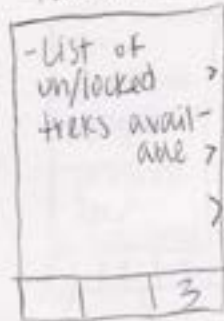 -List of
un/locked >
treks avail-
able >
>
3